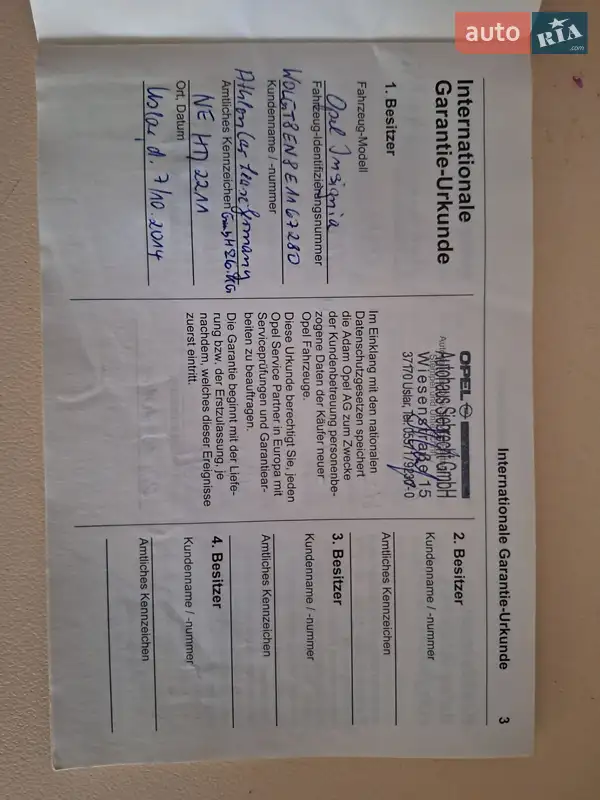 auto RIA
.com
Internationale Garantie-Urkunde 3
Internationale
Garantie-Urkunde
1. Besitzer
Fahrzeug-Modell
Opel Insignia
Fahrzeug-Identifizierungsnummer
W0LGT8EN8E1167280
Kundenname / -nummer
Athlon Car Lease Germany
GmbH & Co. KG
Amtliches Kennzeichen
NE HD 2211
Ort, Datum
Uslar, d. 7/10.2014
OPEL
Autohaus Siebrecht GmbH
Wiesenstraße 15
37170 Uslar, Tel.
Im Einklang mit den nationalen
Datenschutzgesetzen speichert
die Adam Opel AG zum Zwecke
der Kundenbetreuung personenbe-
zogene Daten der Käufer neuer
Opel Fahrzeuge.
Diese Urkunde berechtigt Sie, jeden
Opel Service Partner in Europa mit
Serviceprüfungen und Garantiear-
beiten zu beauftragen.
Die Garantie beginnt mit der Liefe-
rung bzw. der Erstzulassung, je
nachdem, welches dieser Ereignisse
zuerst eintritt.
2. Besitzer
Kundenname / -nummer
Amtliches Kennzeichen
3. Besitzer
Kundenname / -nummer
Amtliches Kennzeichen
4. Besitzer
Kundenname / -nummer
Amtliches Kennzeichen